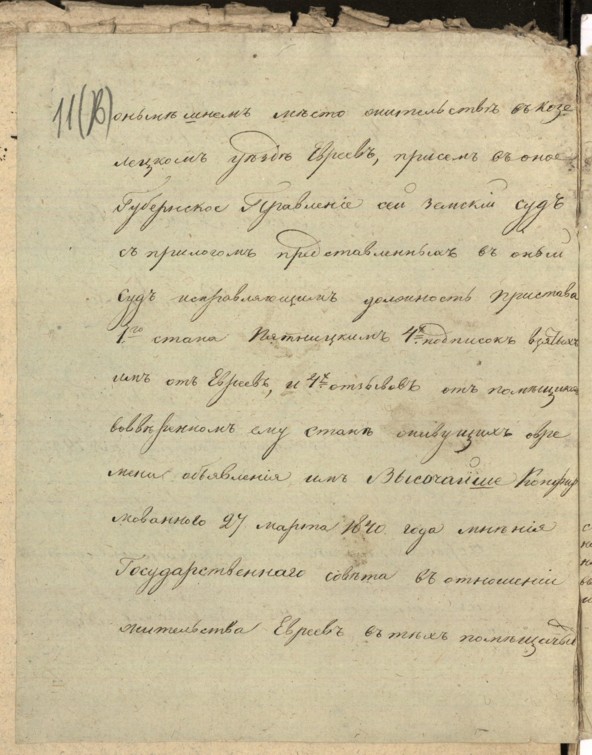 11(В)
онымъ имѣемъ мѣсто жительствѣ въ Козе
лецкомъ уѣздѣ Евреевъ, присемъ въ оное
Губернское Правленіе сей Земскій судъ
съ прилогомъ представленныхъ въ оный
Судъ исправляющимъ должность Пристава
1го стана Пятницкимъ 4х подписокъ взятыхъ
имъ отъ Евреевъ, и 4х отзывовъ отъ помѣщика
вовверенномъ ему станѣ живущихъ овре
мени объявленія имъ Высочайше Конфир
мованнаго 27 марта 1840 года мнѣнія
Государственнаго совѣта въ отношеніи
жительства Евреевъ въ тѣхъ помѣщичьи